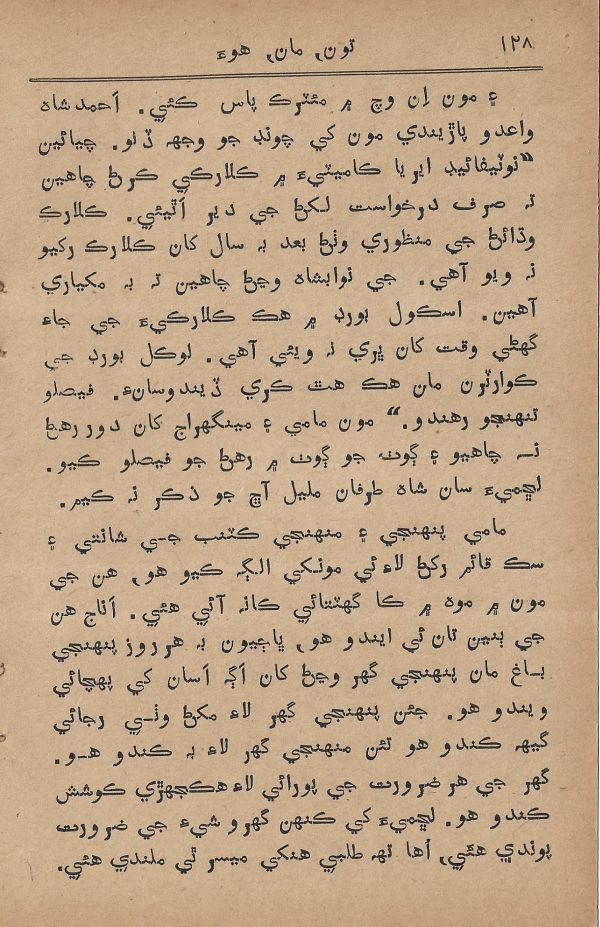 ١٢٨
تون, مان, هوءَ
۽ مون اِن وچ ۾ مئٽرڪ پاس ڪئي. احمدشاه
واعدو پاڙيندي مون کي چونڊ جو وجهه ڏنو. چيائين
”نوٽيفائيڊ ايريا ڪاميٽيءَ ۾ ڪلارڪي ڪرڻ چاهين
تہ صرف درخواست لکڻ جي دير اَٿيئي. ڪلارڪ
وڌائڻ جي منظوري وٺڻ بعد بہ سال کان ڪلارڪ رکيو
نہ ويو آهي. جي نوابشاه وڃڻ چاهين تہ بہ مکياري
آهين. اسڪول بورڊ ۾ هڪ ڪلارڪيءَ جي جاءِ
گهڻي وقت کان ڀري نہ ويئي آهي. لوڪل بورڊ جي
ڪوارٽرن مان هڪ هٿ ڪري ڏيندوسانءِ. فيصلو
تنهنجو رهندو.“ مون مامي ۽ مينگهراج کان دور رهڻ
نہ چاهيو ۽ ڳوٺ جو ڳوٺ ۾ رهڻ جو فيصلو ڪيو.
لڇميءَ سان شاه طرفان مليل آڇ جو ذڪر نہ ڪيم.
مامي پنهنجي ۽ منهنجي ڪٽنب جي شانتي ۽
سک قائم رکڻ لاءِ ئي مونکي الڳ ڪيو هو, هن جي
مون ۾ موه ۾ ڪا گهٽتائي ڪانہ آئي هئي. اَناج هن
جي ٻنين تان ئي ايندو هو, ڀاڄيون بہ هر روز پنهنجي
باغ مان پنهنجي گهر وڃڻ کان اَڳ اَسان کي پهچائي
ويندو هو. جئن پنهنجي گهر لاءِ مکڻ وٺي رجائي
گيهہ ڪندو هو تئن منهنجي گهر لاءِ بہ ڪندو هو.
گهر جي هر ضرورت جي پورائي لاءِ هڪجهڙي ڪوشش
ڪندو هو. لڇميءَ کي ڪنهن گهرو شيءِ جي ضرورت
پوندي هئي, اُها تهہ طلبي هنکي ميسر ٿي ملندي هئي.